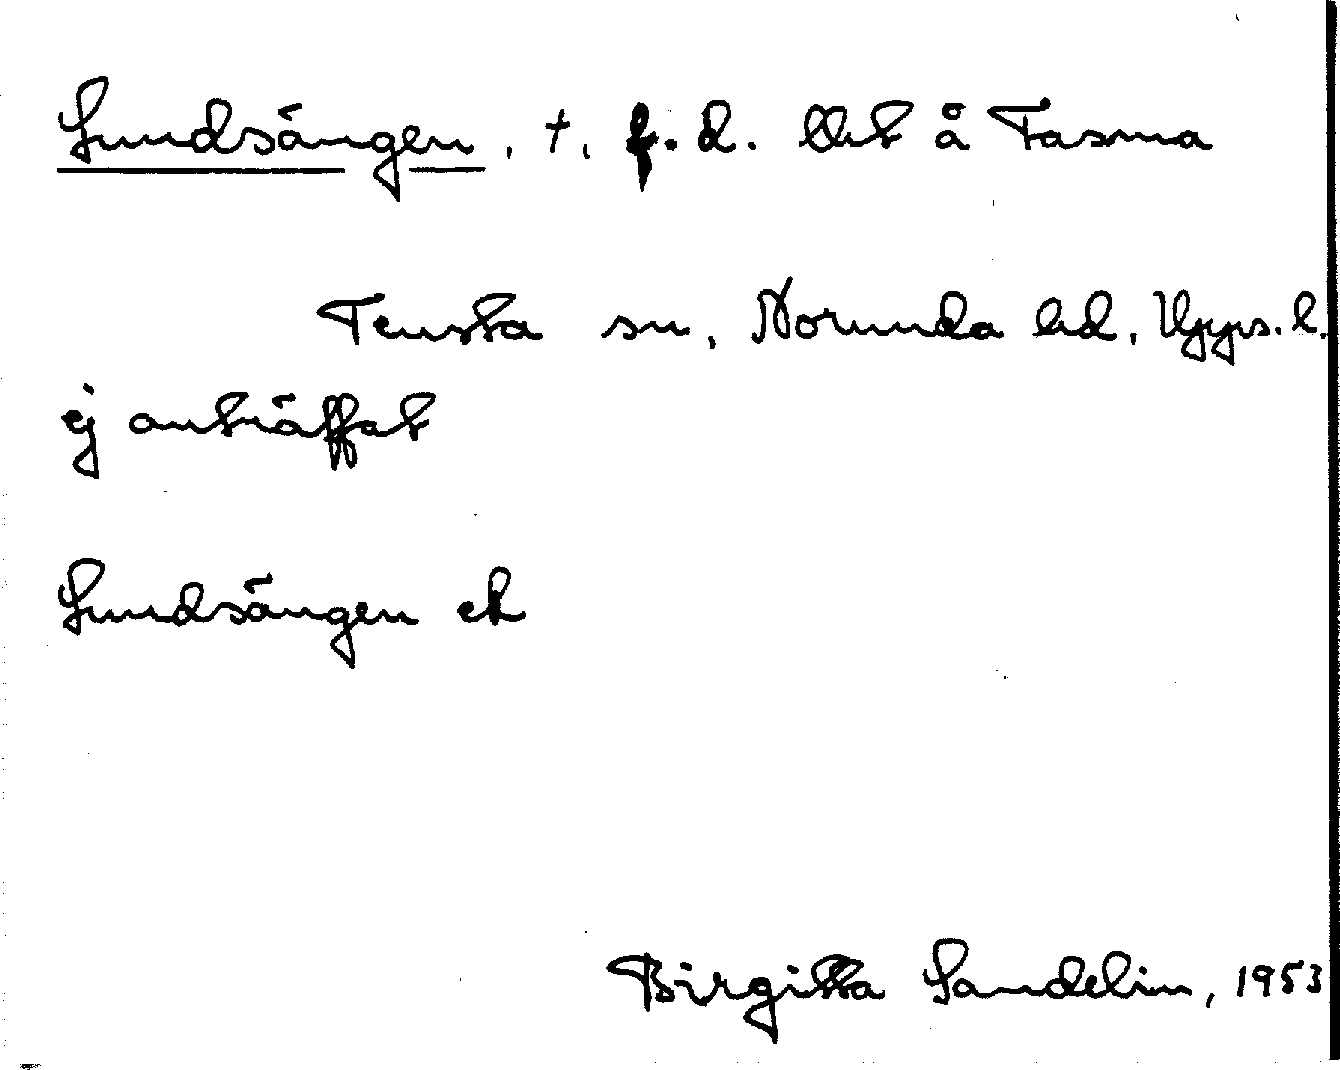 Sundsängen, †, f.d. lht å Tasma
Tensta sn, Norunda hd, Upps. l.
ej anträffat
Sundsängen ek
Birgitta Sandelin, 1953